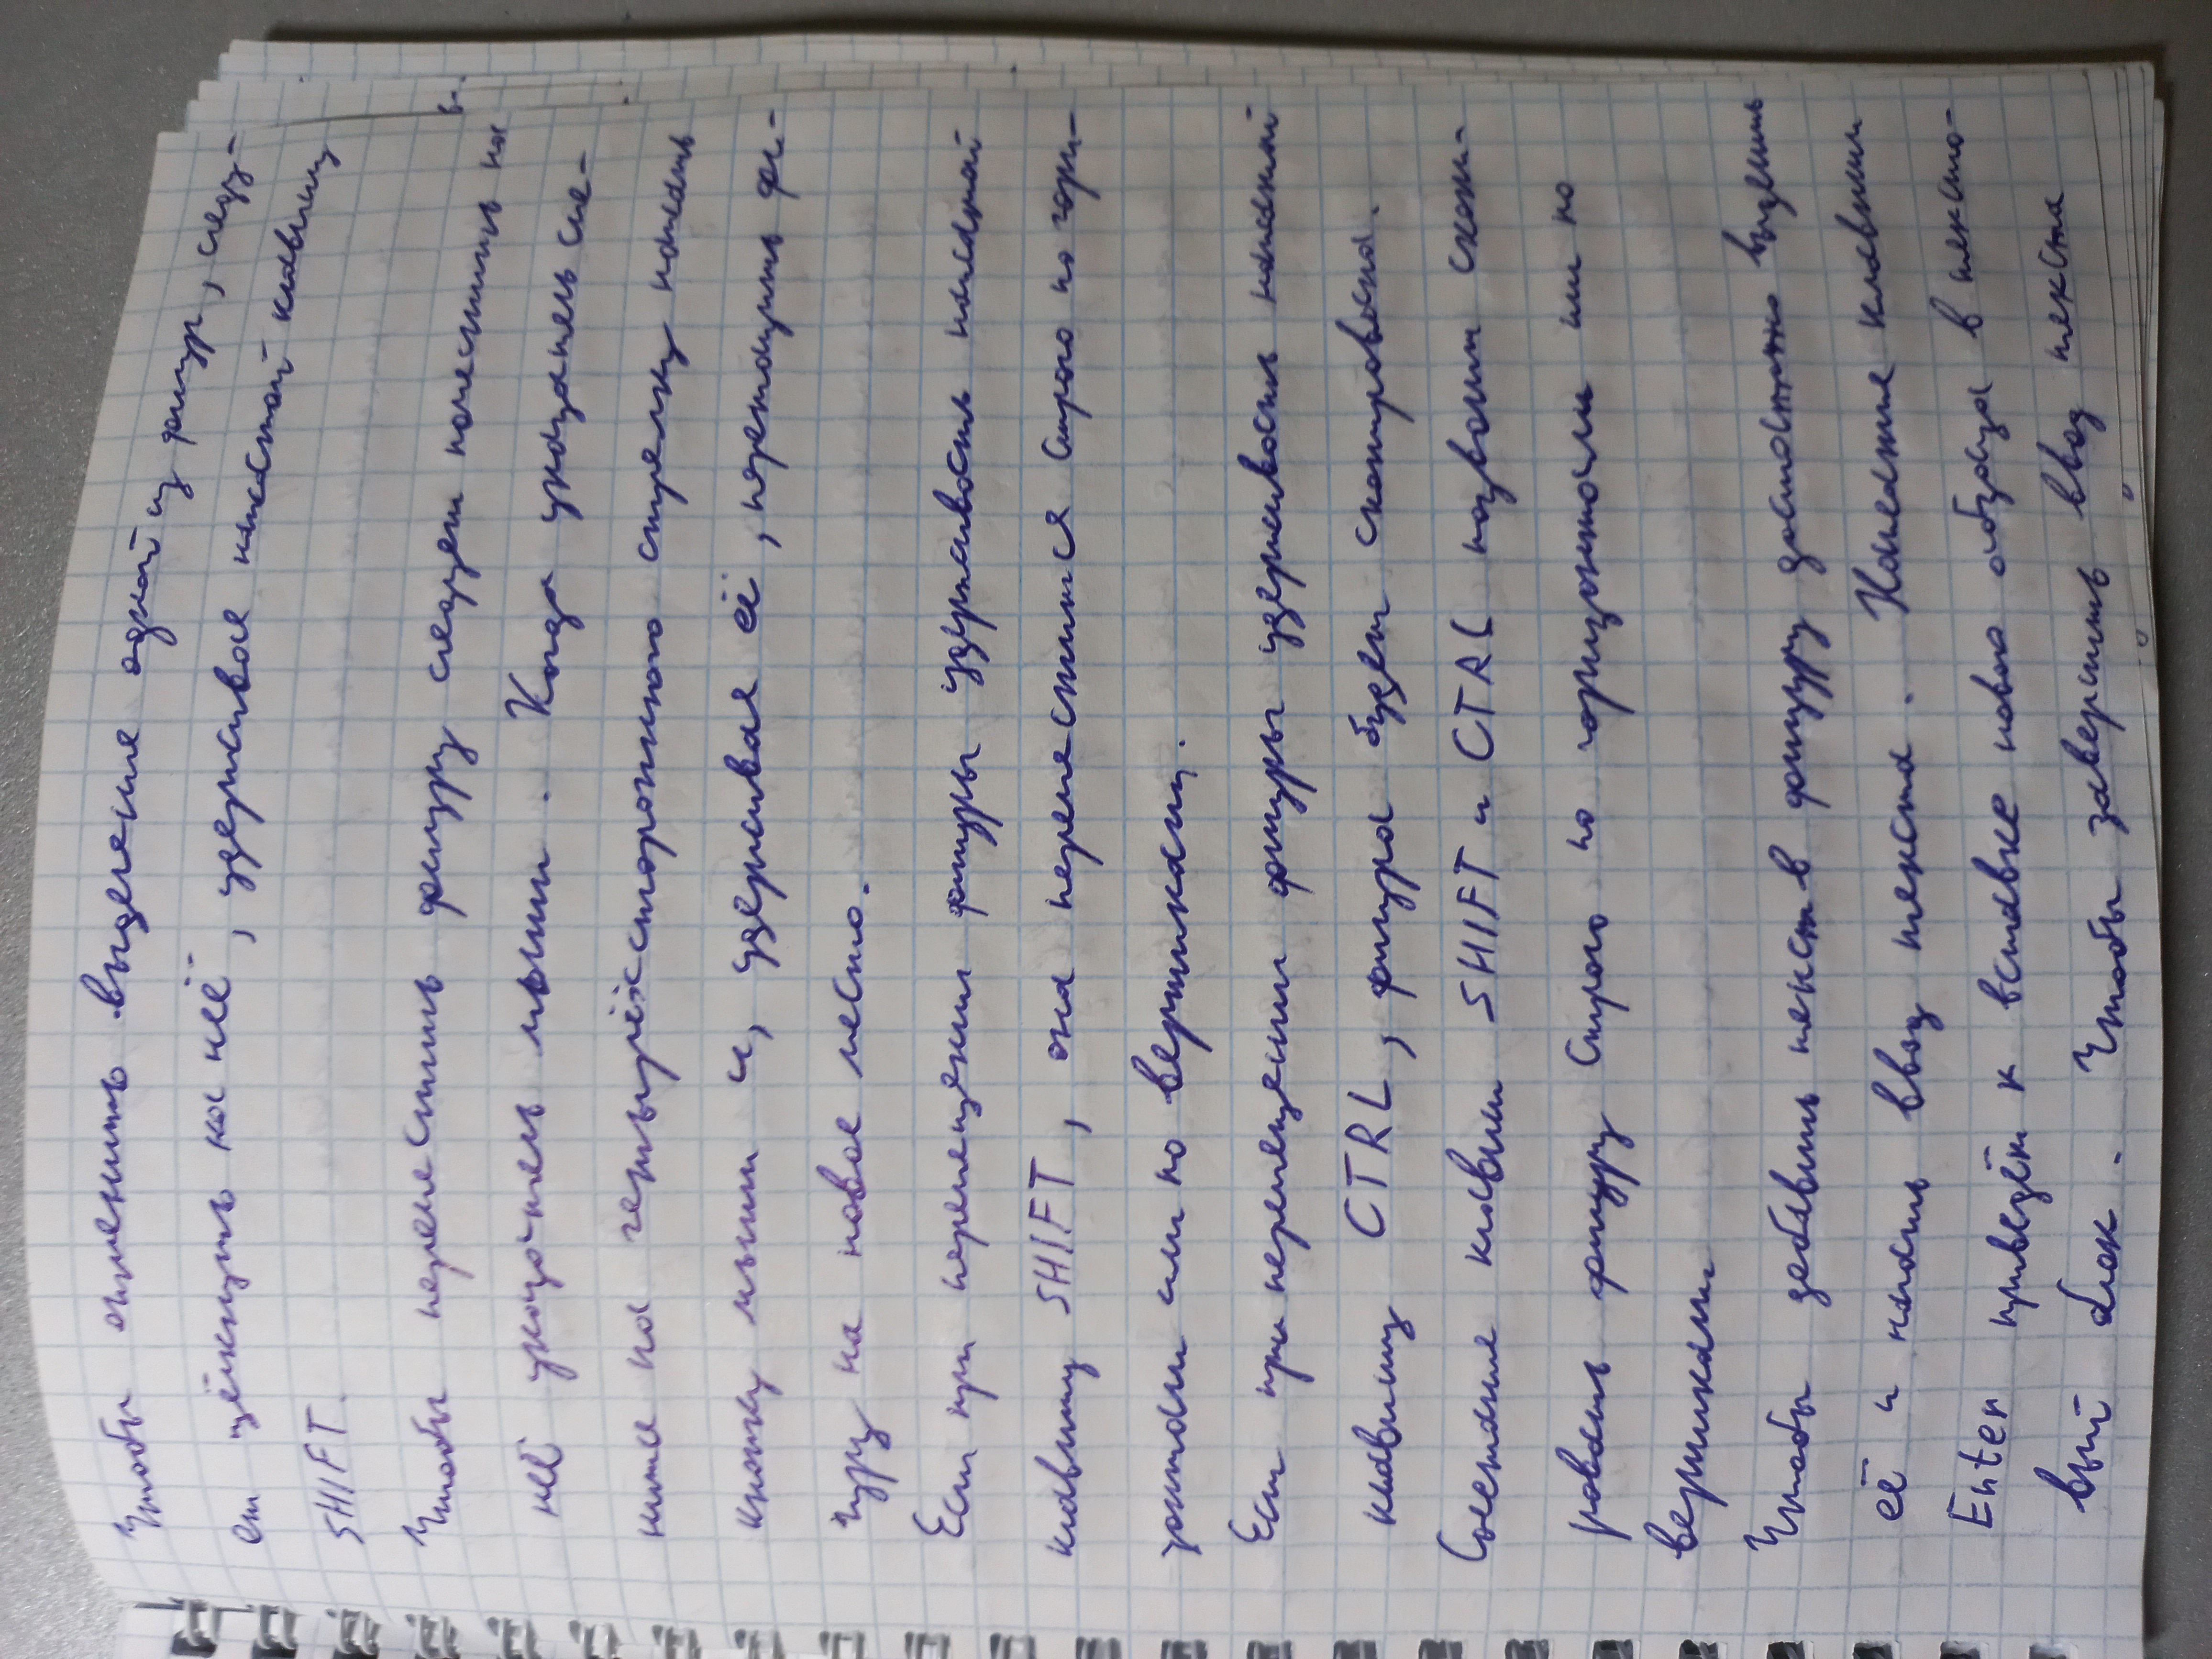 Чтобы отменить выделение одной из фигур, следу-
ет щёлкнуть на неё, удерживая нажатой клавишу
SHIFT.
Чтобы переместить фигуру следует поместить на
неё указатель мыши. Когда указатель сме-
нится на четырёхстороннюю стрелку нажать
кнопку мыши и, удерживая её, перетащить фи-
гуру на новое место.
Если при перемещении фигуры удерживать нажатой
клавишу SHIFT, она переместится строго по гори-
зонтали или по вертикали.
Если при перемещении фигуры удерживать нажатой
клавишу CTRL, фигура будет скопирована.
Сочетание клавиш SHIFT и CTRL позволит скопи-
ровать фигуру строго по горизонтали или по
вертикали
Чтобы добавить текст в фигуру достаточно выделить
её и начать ввод текста. Нажатие клавиши
Enter приведёт к вставке нового абзаца в тексто-
вый блок. Чтобы завершить ввод текста